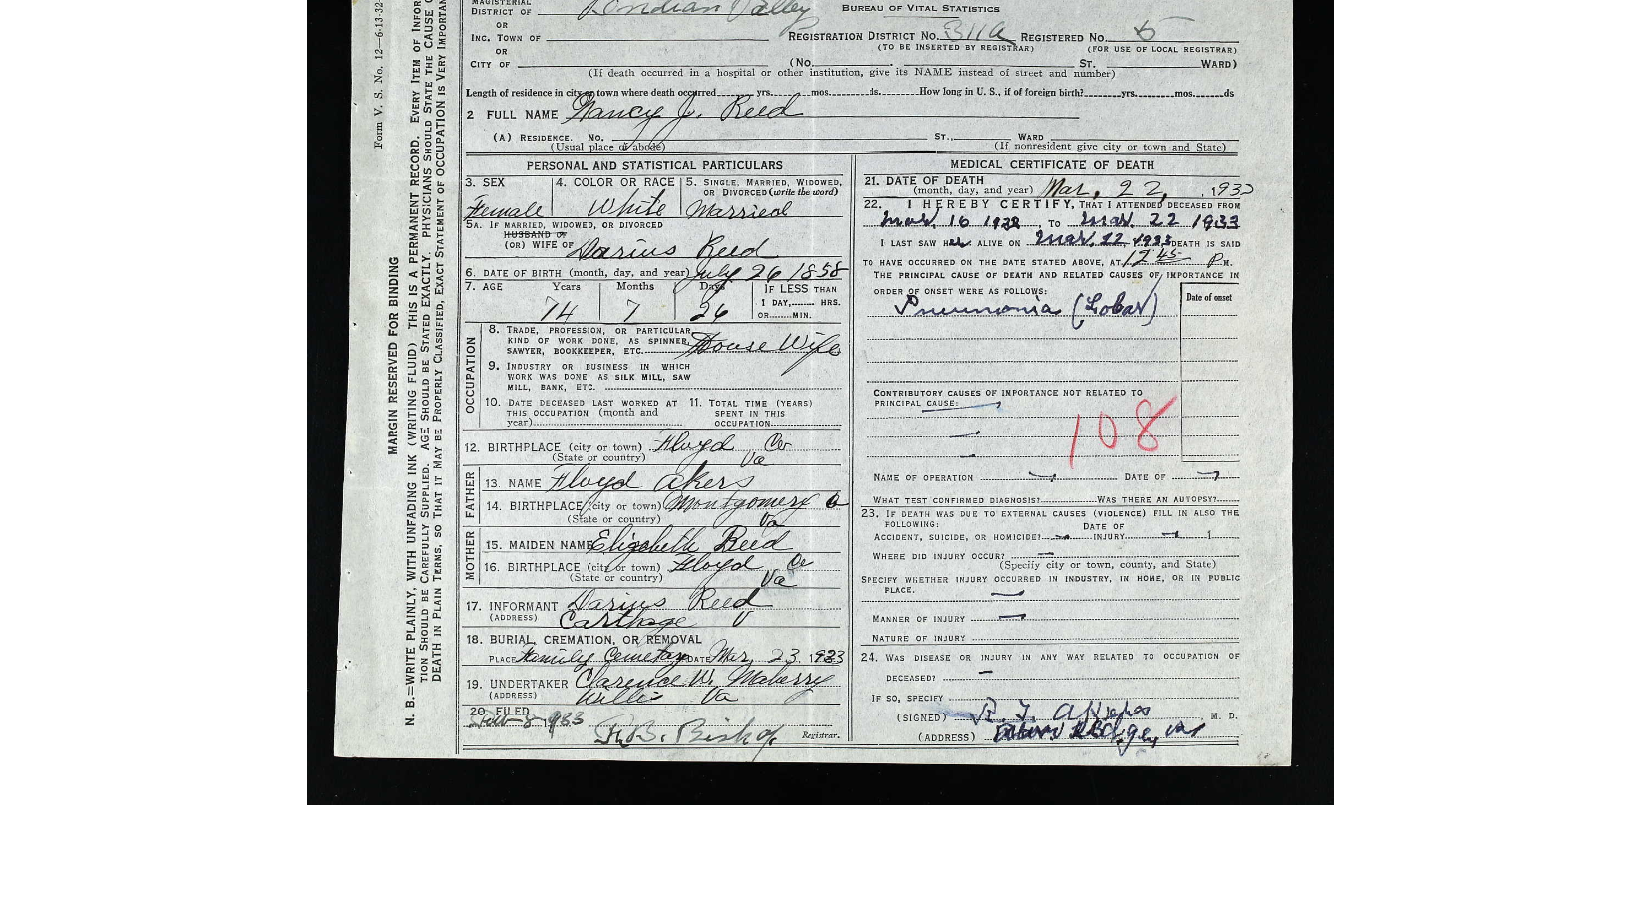 MAGISTERIAL
DISTRICT OF Indian Valley
BUREAU OF VITAL STATISTICS
OR
INC. TOWN OF REGISTRATION DISTRICT No. 311a REGISTERED No. 5
(TO BE INSERTED BY REGISTRAR) (FOR USE OF LOCAL REGISTRAR)
OR
CITY OF (No. ST. WARD)
(If death occurred in a hospital or other institution, give its NAME instead of street and number)
Length of residence in city or town where death occurred yrs. mos. ds. How long in U. S., if of foreign birth? yrs. mos. ds
2 FULL NAME Nancy J. Reed
(A) RESIDENCE. No. ST., WARD
(Usual place of abode) (If nonresident give city or town and State)
PERSONAL AND STATISTICAL PARTICULARS
3. SEX 4. COLOR OR RACE 5. SINGLE, MARRIED, WIDOWED,
OR DIVORCED (write the word)
Female White Married
5A. IF MARRIED, WIDOWED, OR DIVORCED
HUSBAND OF
(OR) WIFE OF Darius Reed
6. DATE OF BIRTH (month, day, and year) July 26 1858
7. AGE Years Months Days IF LESS THAN
1 DAY, HRS.
74 7 26 OR MIN.
OCCUPATION
8. TRADE, PROFESSION, OR PARTICULAR
KIND OF WORK DONE, AS SPINNER,
SAWYER, BOOKKEEPER, ETC. House Wife
9. INDUSTRY OR BUSINESS IN WHICH
WORK WAS DONE AS SILK MILL, SAW
MILL, BANK, ETC.
10. DATE DECEASED LAST WORKED AT 11. TOTAL TIME (YEARS)
THIS OCCUPATION (month and SPENT IN THIS
year) OCCUPATION
12. BIRTHPLACE (city or town) Floyd Co
(State or country) Va
FATHER
13. NAME Floyd Akers
14. BIRTHPLACE (city or town) Montgomery Co
(State or country) Va
MOTHER
15. MAIDEN NAME Elizabeth Reed
16. BIRTHPLACE (city or town) Floyd Co
(State or country) Va
17. INFORMANT Darius Reed
(ADDRESS) Carthage V
18. BURIAL, CREMATION, OR REMOVAL
PLACE Family Cemetary DATE Mar, 23, 1933
19. UNDERTAKER Clarence W. Maberry
(ADDRESS) Willis Va
20. FILED 8 1933
Bishop Registrar.
MEDICAL CERTIFICATE OF DEATH
21. DATE OF DEATH
(month, day, and year) Mar, 22, 1933
22. I HEREBY CERTIFY, THAT I ATTENDED DECEASED FROM
Mar. 16 193 , TO Mar. 22 1933
I LAST SAW her ALIVE ON Mar. 22 1933 DEATH IS SAID
TO HAVE OCCURRED ON THE DATE STATED ABOVE, AT 12 45 P M.
THE PRINCIPAL CAUSE OF DEATH AND RELATED CAUSES OF IMPORTANCE IN
ORDER OF ONSET WERE AS FOLLOWS:
Date of onset
Pneumonia (Lobar)
CONTRIBUTORY CAUSES OF IMPORTANCE NOT RELATED TO
PRINCIPAL CAUSE:
108
NAME OF OPERATION DATE OF
WHAT TEST CONFIRMED DIAGNOSIS? WAS THERE AN AUTOPSY?
23. IF DEATH WAS DUE TO EXTERNAL CAUSES (VIOLENCE) FILL IN ALSO THE
FOLLOWING: DATE OF
ACCIDENT, SUICIDE, OR HOMICIDE? INJURY 1
WHERE DID INJURY OCCUR?
(Specify city or town, county, and State)
SPECIFY WHETHER INJURY OCCURRED IN INDUSTRY, IN HOME, OR IN PUBLIC
PLACE.
MANNER OF INJURY
NATURE OF INJURY
24. WAS DISEASE OR INJURY IN ANY WAY RELATED TO OCCUPATION OF
DECEASED?
IF SO, SPECIFY
(SIGNED) M. D.
(ADDRESS)
Form V. S. No. 12—6-13-32-
MARGIN RESERVED FOR BINDING
N. B.—WRITE PLAINLY, WITH UNFADING INK (WRITING FLUID) THIS IS A PERMANENT RECORD. EVERY ITEM OF INFOR
TION SHOULD BE CAREFULLY SUPPLIED. AGE SHOULD BE STATED EXACTLY. PHYSICIANS SHOULD STATE THE CAUSE O
DEATH IN PLAIN TERMS, SO THAT IT MAY BE PROPERLY CLASSIFIED, EXACT STATEMENT OF OCCUPATION IS VERY IMPORTAN